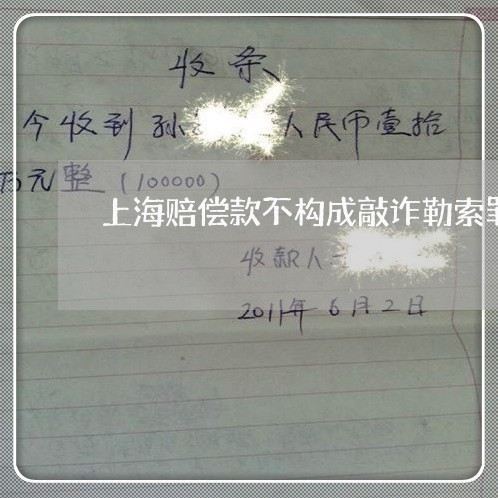 收条
今收到孙 人民币壹拾
万元整(100000)
上海赔偿款不构成敲诈勒索罪
收款人
2011年6月2日